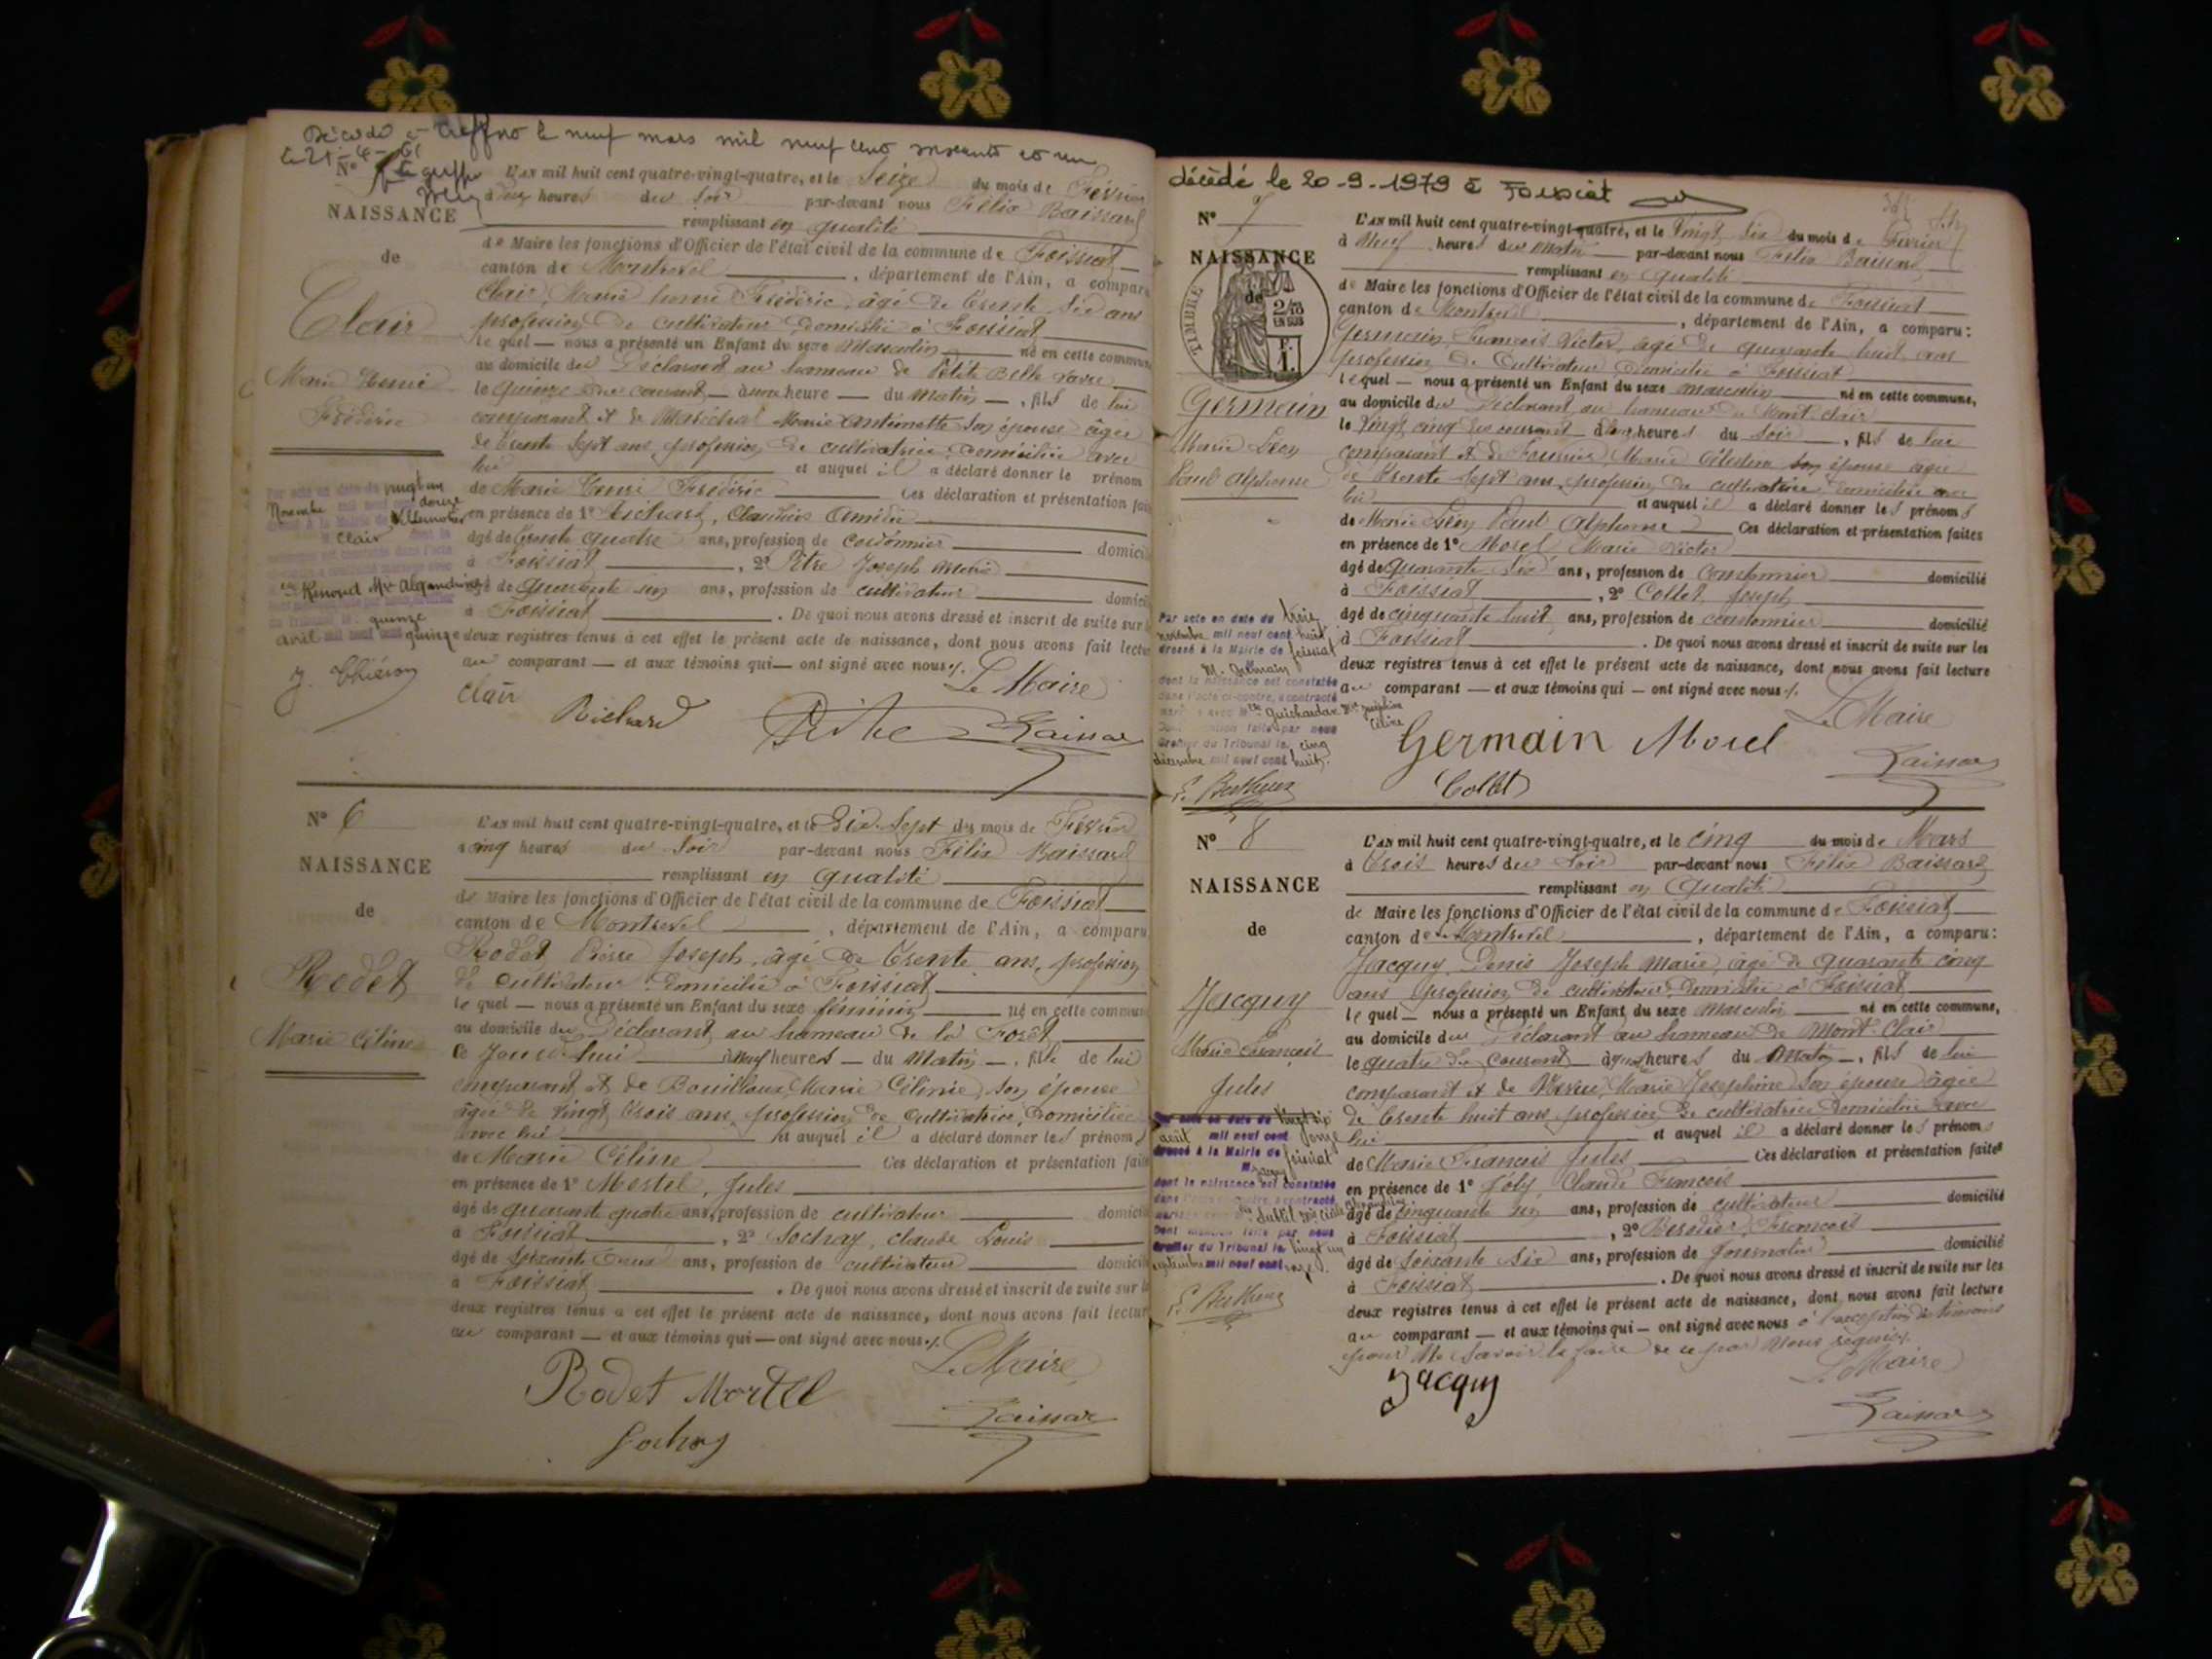 Décédé à Treffort le neuf mars mil neuf cent soixante et un
le 21-4-61
Le greffier
N° 5
NAISSANCE
de
Clair
Marie Henri
Frédéric
L'AN mil huit cent quatre-vingt-quatre, et le Seize du mois de Février
à deux heures du Soir par-devant nous Félix Baissard
remplissant en qualité
de Maire les fonctions d'Officier de l'état civil de la commune de Foissiat
canton de Montrevel, département de l'Ain, a comparu
Clair, Marie henri Frédéric, âgé de trente six ans
profession de cultivateur domicilié à Foissiat
le quel — nous a présenté un Enfant du sexe Masculin né en cette commune
au domicile du Déclarant au hameau de Petite Belle
le quinze du courant à heure — du Matin —, fils de lui
comparant et de Maréchal Marie Antoinette son épouse âgée
de trente Sept ans, profession de cultivatrice, domiciliée avec
lui et auquel il a déclaré donner le prénom
de Marie henri Frédéric Ces déclaration et présentation fai
en présence de 1° Richard, Claudius Amédée
âgé de trente quatre ans, profession de cordonnier domici
à Foissiat, 2° Pitre Joseph Marie
âgé de quarante un ans, profession de cultivateur domici
à Foissiat. De quoi nous avons dressé et inscrit de suite sur
deux registres tenus à cet effet le présent acte de naissance, dont nous avons fait lectu
au comparant — et aux témoins qui — ont signé avec nous ./.
Par acte en date du vingt un
Novembre mil neuf cent douze
dressé à la Mairie de Villemotier
Clair
Renoud Mie Alexandrine
quinze
avril mil neuf cent quinze
J. Chiéron
Le Maire
Clair Richard Pitre Baissard
N° 6
NAISSANCE
de
Rodet
Marie Céline
L'AN mil huit cent quatre-vingt-quatre, et le Dix-Sept du mois de Février
à cinq heures du Soir par-devant nous Félix Baissard
remplissant en qualité
de Maire les fonctions d'Officier de l'état civil de la commune de Foissiat
canton de Montrevel, département de l'Ain, a comparu
Rodet Pierre Joseph, âgé de trente ans, profession
de cultivateur domicilié à Foissiat
le quel — nous a présenté un Enfant du sexe féminin né en cette commun
au domicile du Déclarant au hameau de la Forêt
Ce Jourd'hui à neuf heures — du Matin —, fille de lui
comparant et de Bouilloux, Marie Célinie, son épouse
âgée de vingt trois ans, profession de cultivatrice, domiciliée
avec lui et auquel il a déclaré donner les prénoms
de Marie Céline Ces déclaration et présentation fait
en présence de 1° Mortel, Jules
âgé de quarante quatre ans, profession de cultivateur domici
à Foissiat, 2° Sochay, Claude Louis
âgé de soixante deux ans, profession de cultivateur domici
à Foissiat. De quoi nous avons dressé et inscrit de suite sur
deux registres tenus à cet effet le présent acte de naissance, dont nous avons fait lectur
au comparant — et aux témoins qui — ont signé avec nous ./.
Le Maire
Rodet Mortel
Sochay Baissard
décédé le 20-9-1979 à Foissiat
N° 7
NAISSANCE
de
TIMBRE
2/10
EN SUS
F.
1.
Germain
Marie Léon
Paul Alphonse
L'AN mil huit cent quatre-vingt-quatre, et le Vingt Six du mois de Février
à Neuf heures du Matin par-devant nous Félix Baissard
remplissant en qualité
de Maire les fonctions d'Officier de l'état civil de la commune de Foissiat
canton de Montrevel, département de l'Ain, a comparu :
Germain, François Victor, âgé de quarante huit ans
profession de Cultivateur domicilié à Foissiat
lequel — nous a présenté un Enfant du sexe masculin né en cette commune,
au domicile du Déclarant au hameau de Mont Clair
le Vingt cinq du courant à heures du Soir, fils de lui
comparant et de Fournier, Marie Célestine son épouse âgée
de trente Sept ans, profession de cultivatrice domiciliée avec
lui et auquel il a déclaré donner les prénoms
de Marie Léon Paul Alphonse Ces déclaration et présentation faites
en présence de 1° Morel Marie Victor
âgé de quarante six ans, profession de cordonnier domicilié
à Foissiat, 2° Collet, Joseph
âgé de cinquante huit ans, profession de cordonnier domicilié
à Foissiat. De quoi nous avons dressé et inscrit de suite sur les
deux registres tenus à cet effet le présent acte de naissance, dont nous avons fait lecture
au comparant — et aux témoins qui — ont signé avec nous ./.
Par acte en date du treize
novembre mil neuf cent huit
dressé à la Mairie de foissiat
M. Germain
dont la naissance est constatée
dans l'acte ci-contre, a contracté
mariage avec Guichardan Mie Joséphine
Céline
Dont mention faite par nous
Greffier du Tribunal le cinq
décembre mil neuf cent huit.
Le Maire
Germain Morel
Collet Baissard
N° 8
NAISSANCE
de
Jacquy
Marie François
Jules
L'AN mil huit cent quatre-vingt-quatre, et le cinq du mois de Mars
à trois heures du Soir par-devant nous Félix Baissard
remplissant en Qualité
de Maire les fonctions d'Officier de l'état civil de la commune de Foissiat
canton de Montrevel, département de l'Ain, a comparu :
Jacquy, Denis Joseph Marie, âgé de quarante cinq
ans profession de cultivateur, domicilié à Foissiat
le quel — nous a présenté un Enfant du sexe masculin né en cette commune,
au domicile du Déclarant au hameau de Mont Clair
le quatre du courant à heures du Matin —, fils de lui
comparant et de Marie Joséphine son épouse âgée
de trente huit ans profession de cultivatrice domiciliée avec
lui et auquel il a déclaré donner les prénoms
de Marie François Jules Ces déclaration et présentation faites
en présence de 1° Joly, Claude François
âgé de cinquante un ans, profession de cultivateur domicilié
à Foissiat, 2° François
âgé de soixante six ans, profession de Journalier domicilié
à Foissiat. De quoi nous avons dressé et inscrit de suite sur les
deux registres tenus à cet effet le présent acte de naissance, dont nous avons fait lecture
au comparant — et aux témoins qui — ont signé avec nous à l'exception des témoins
pour ne savoir le faire de ce par nous requis ./.
Par acte en date du vingt six
août mil neuf cent onze
dressé à la Mairie de foissiat
M. Jacquy
dont la naissance est constatée
Dont mention faite par nous
Greffier du Tribunal le vingt un
septembre mil neuf cent onze.
Le Maire
Jacquy
Baissard